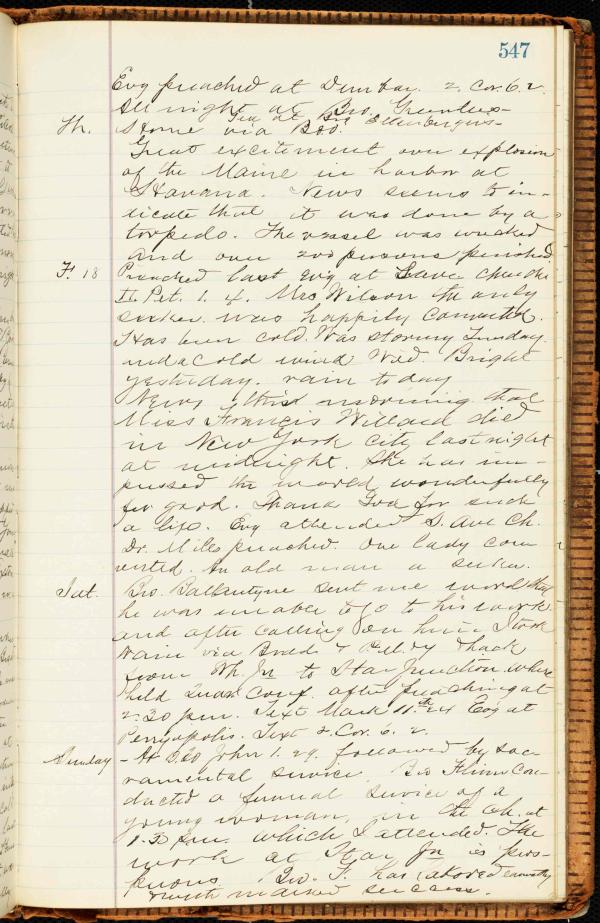 547
Evg preached at Dunbar. 2. Cor. 6. 2.
All night at Bro.
Tea at Bro Ellenbergers
Th. Home via B&O.
Great excitement over explosion
of the Maine in harbor at
Havana. News seems to in-
dicate that it was done by a
torpedo. The vessel was wrecked
and over 200 persons perished.
F. 18 Preached last Evg at church
II. Pet. 1. 4. Mrs Wilson the only
seeker was happily converted.
Has been cold. Was stormy Tuesday
and a cold wind Wed. Bright
yesterday. rain to day
News this morning that
Miss Francis Willard died
in New York city last night
at midnight. She has im-
pressed the world wonderfully
for good. Thank God for such
a life. Evg attended S. Ave Ch.
Dr. Miles preached. One lady con
verted. An old man a seeker.
Sat. Bro. Ballantyne sent me word that
he was unable to go to his work
and after calling on him I took
train via & hack
from Jn to Star Junction where
held Quar Conf. after preaching at
2.30 p.m. Text Mark 11th 24 Evg at
Perryopolis. Text 2. Cor. 6. 2.
Sunday - At John 1. 29. followed by sac
ramental service. Bro con-
ducted a funeral service of a
young woman, in the ch. at
1.30 p.m. which I attended. The
work at Star Jn is pros-
perous. Bro. F. has labored earnestly
with marked success.